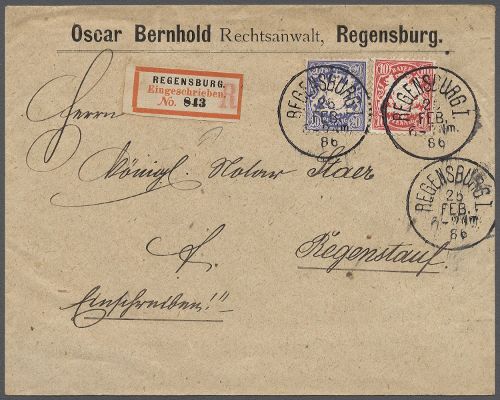 Oscar Bernhold Rechtsanwalt, Regensburg.
REGENSBURG.
Eingeschrieben.
No. 843
R
REGENSBURG I.
26
FEB.
86
REGENSBURG I.
26
FEB.
86
REGENSBURG I.
26
FEB.
86
Herrn
Königl. Notar
Regenstauf.
Einschreiben!"